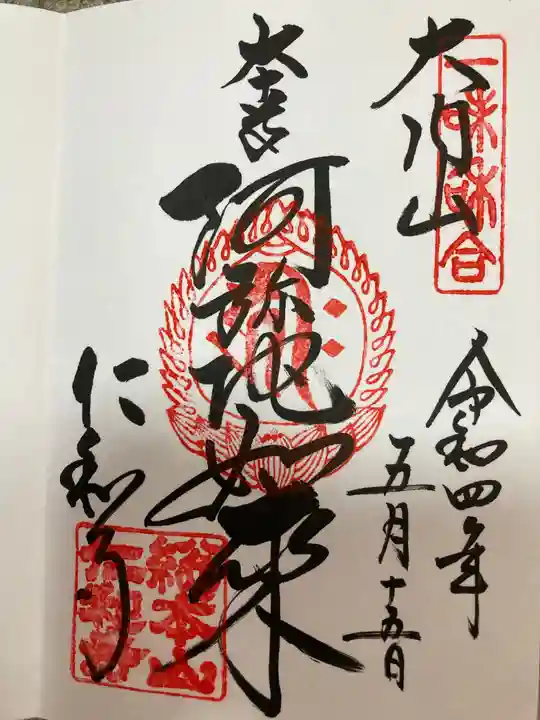 一味和合
大内山
令和四年
五月十五日
本尊
阿弥陀如来
仁和寺
総本山
仁和寺